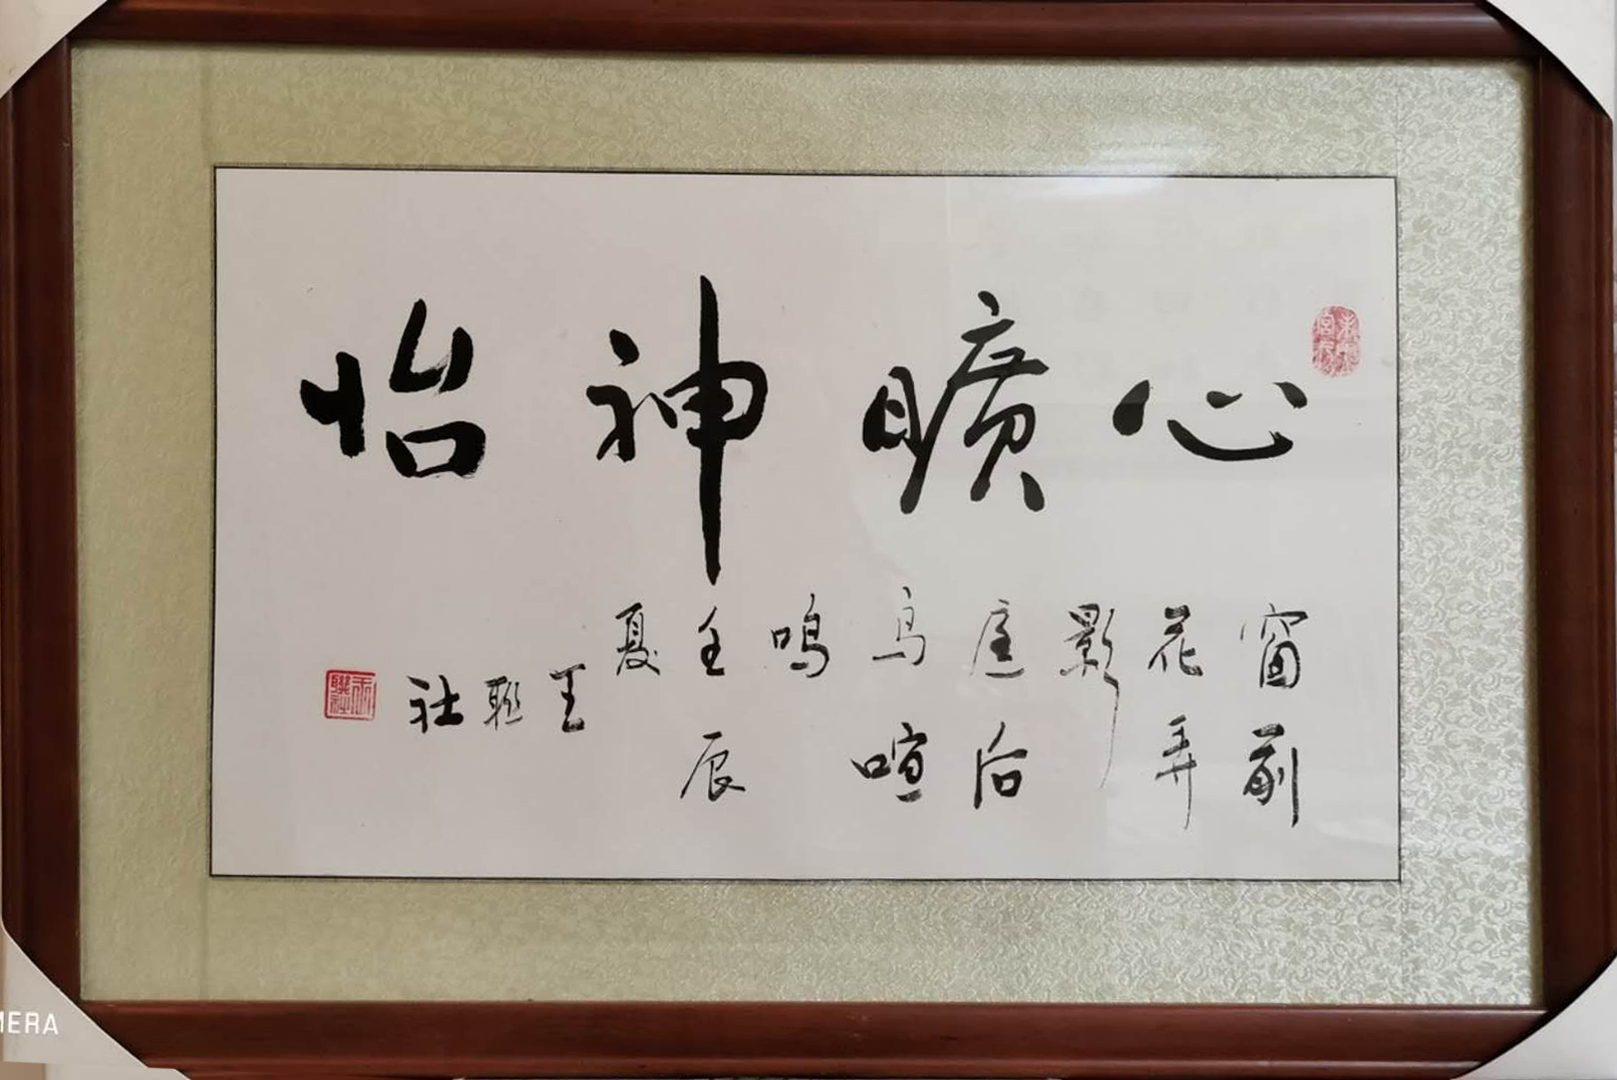 心曠神怡
窗前
花弄
影
庭后
鸟喧
鳴
壬辰
夏
王
联
社
MERA